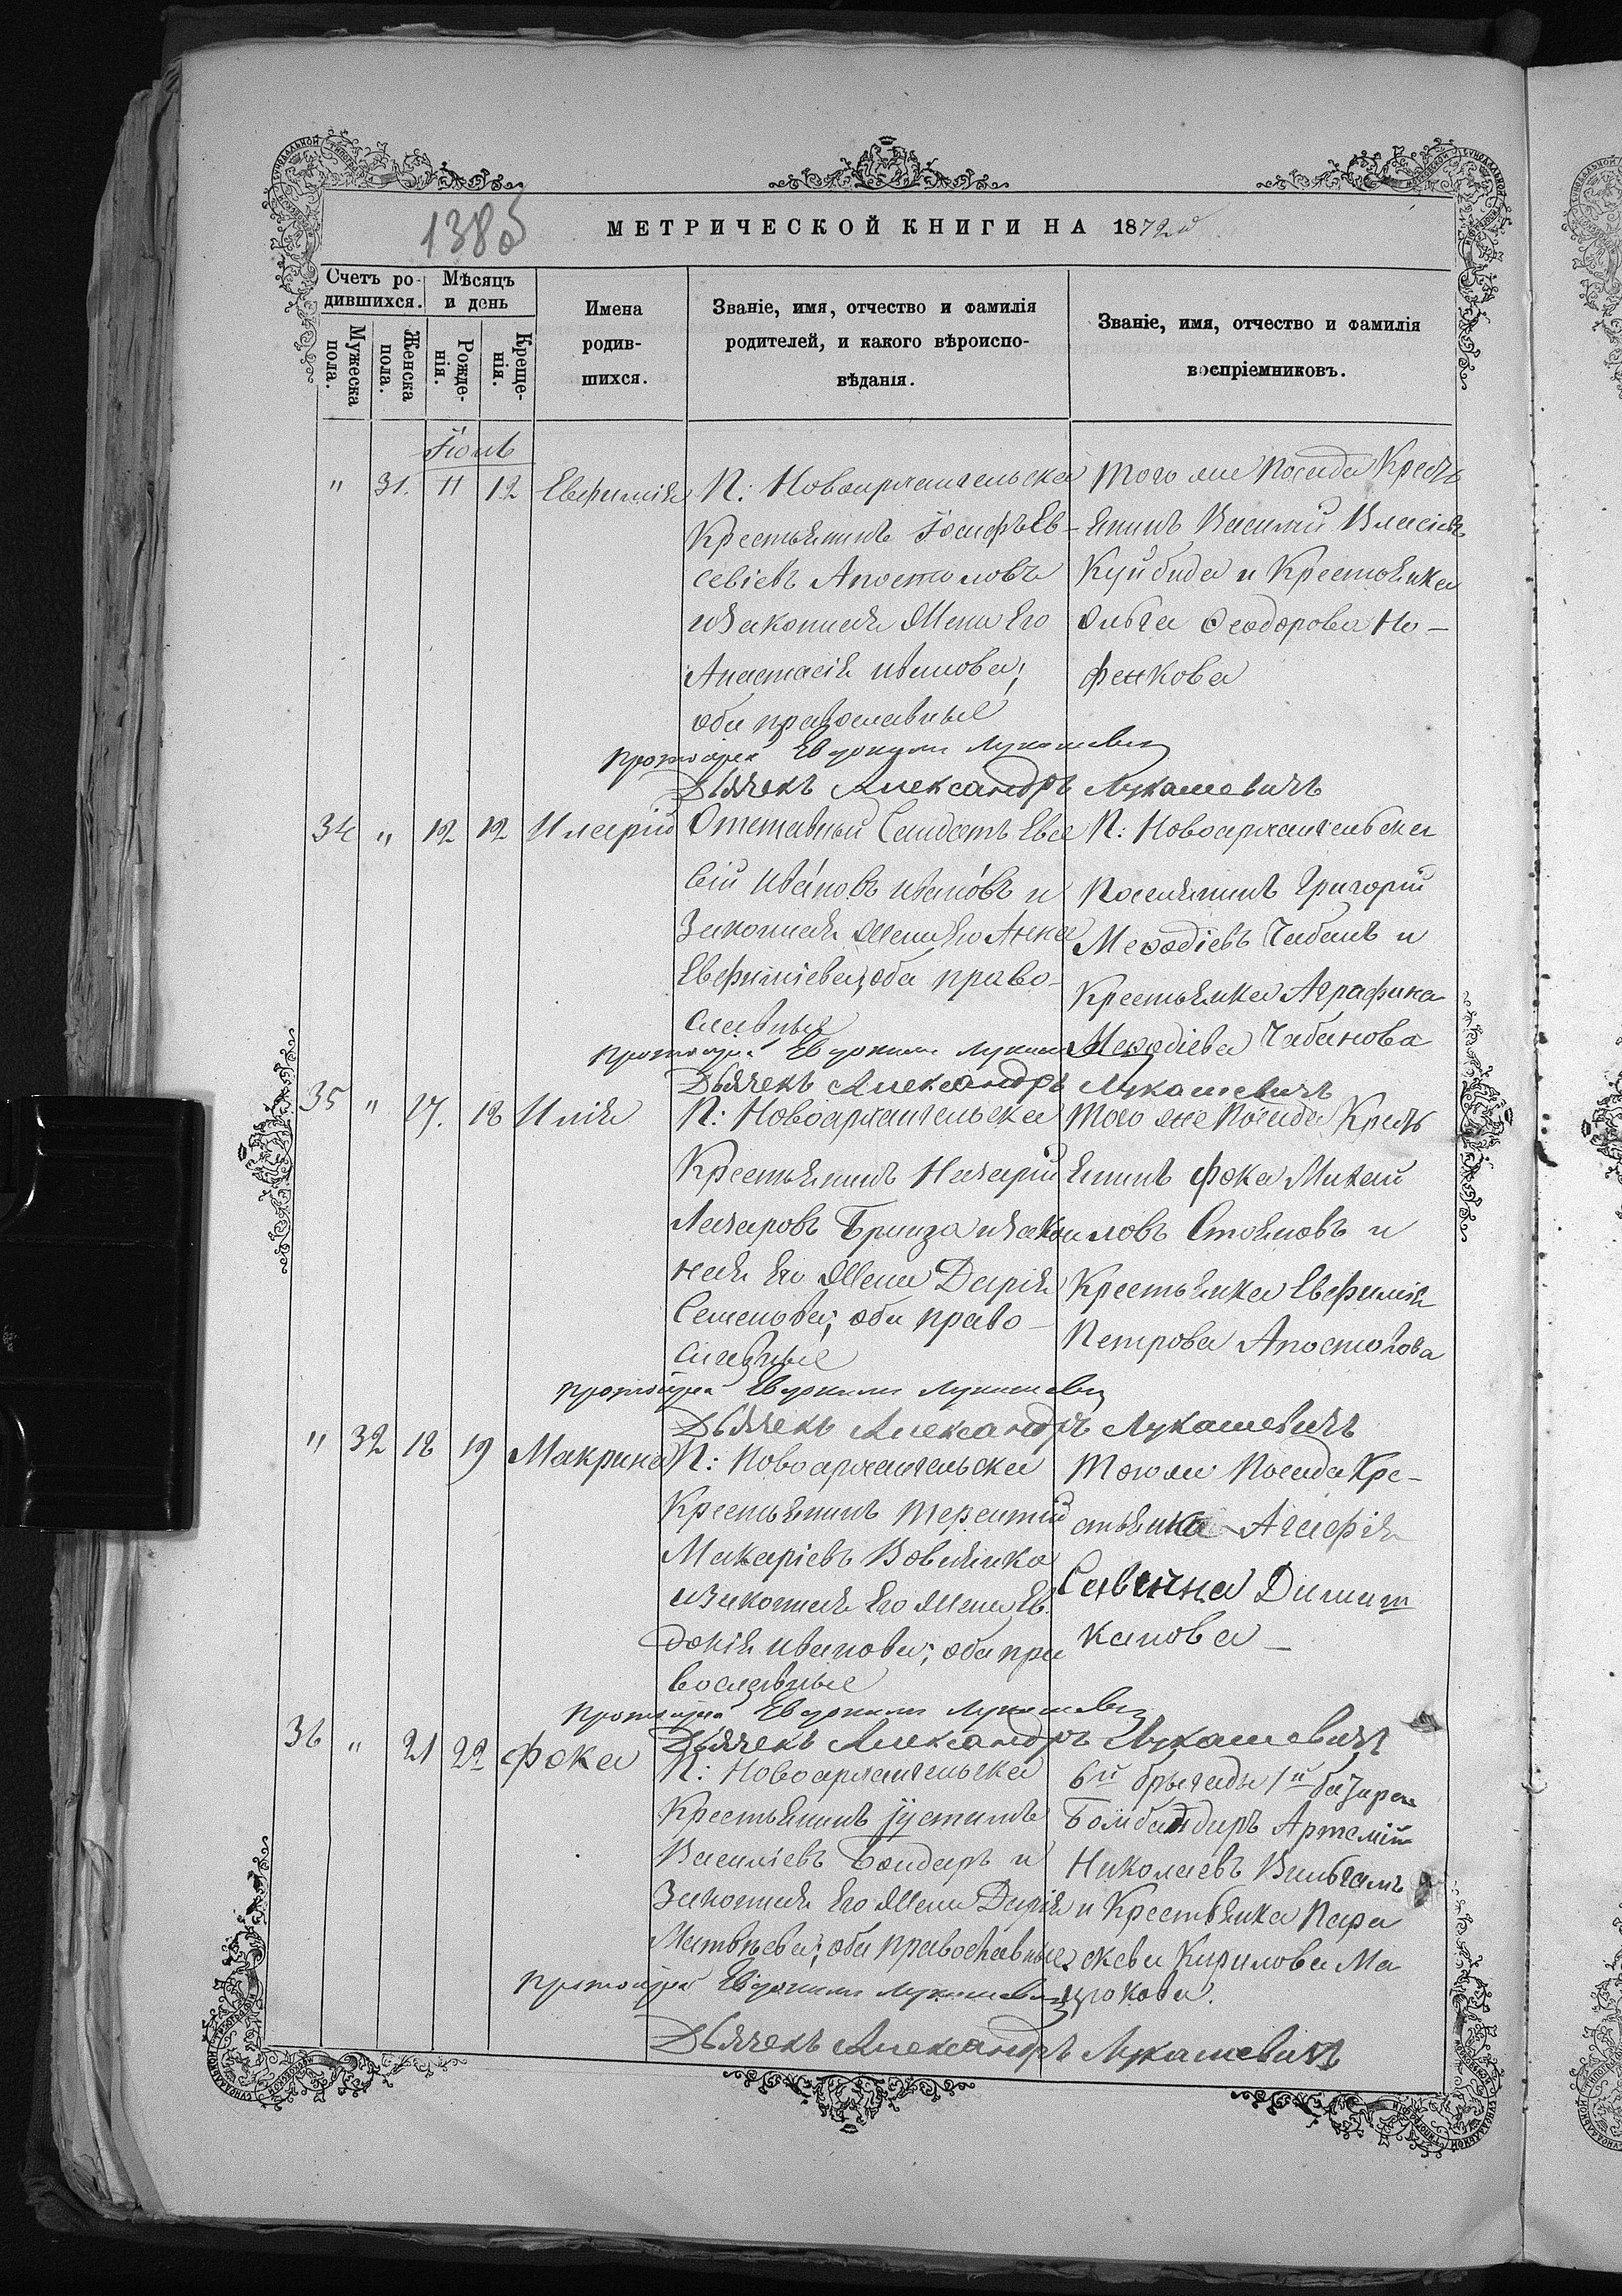 138об
МЕТРИЧЕСКОЙ КНИГИ НА 1872й
Счетъ родившихся.
Мѣсяцъ и день
Мужеска пола.
Женска пола.
Рожденія.
Крещенія.
Имена родившихся.
Званіе, имя, отчество и фамилія
родителей, и какого вѣроиспо-
вѣданія.
Званіе, имя, отчество и фамилія
воспріемниковъ.
Іюль
" 31. 11 12 Евфимія
П: Новоархангельска
Крестьянинъ Іосифъ Ев-
севіевъ Апостоловъ
и Законная Жена Его
Анастасія Иванова;
оба православные
Того же Посада Кресть
янинъ Василій Власіевъ
Куйбида и Крестьянка
Ольга Ѳеодорова Но-
фенкова
Протоіерей Евдокимъ Лукашевичъ
Дьячекъ Александръ Лукашевичъ
34 " 12 12 Иларій
Отставный Солдатъ Евсе
вій Ива́новъ Ивано́въ и
Законная Жена Его Анна
Евфиміева; оба право-
славные
П: Новоархангельска
Поселянинъ Григорій
Меѳодіевъ Чабанъ и
Крестьянка Аграфина
Меѳодіева Чабанова
Протоіерей Евдокимъ Лукашевичъ
Дьячекъ Александръ Лукашевичъ
35 " 17. 18 Илія
П: Новоархангельска
Крестьянинъ Назарій
Лазаровъ Бринза и Закон
ная Его Жена Дарія
Семенова; оба право-
славные
Того же Посада Кресть
янинъ Фока Михаи
ловъ Стояновъ и
Крестьянка Евфимія
Петрова Апостолова
Протоіерей Евдокимъ Лукашевичъ
Дьячекъ Александръ Лукашевичъ
" 32 18 19 Макрина
П: Новоархангельска
Крестьянинъ Терентій
Макаріевъ
и Законная Его Жена Ев
докія Иванова; оба пра
вославные
Того же Посада Кре-
стьянка Агафія
Саввина
канова
Протоіерей Евдокимъ Лукашевичъ
Дьячекъ Александръ Лукашевичъ
36 " 21 22 Фока
П: Новоархангельска
Крестьянинъ Іустинъ
Василіевъ Бондарь и
Законная Его Жена Дарія
Матвѣева; оба православные
6й бригады 1й батареи
Бомбандиръ Артемій
Николаевъ
и Крестьянка Пара
скева Кирилова Ма
цюкова.
Протоіерей Евдокимъ Лукашевичъ
Дьячекъ Александръ Лукашевичъ